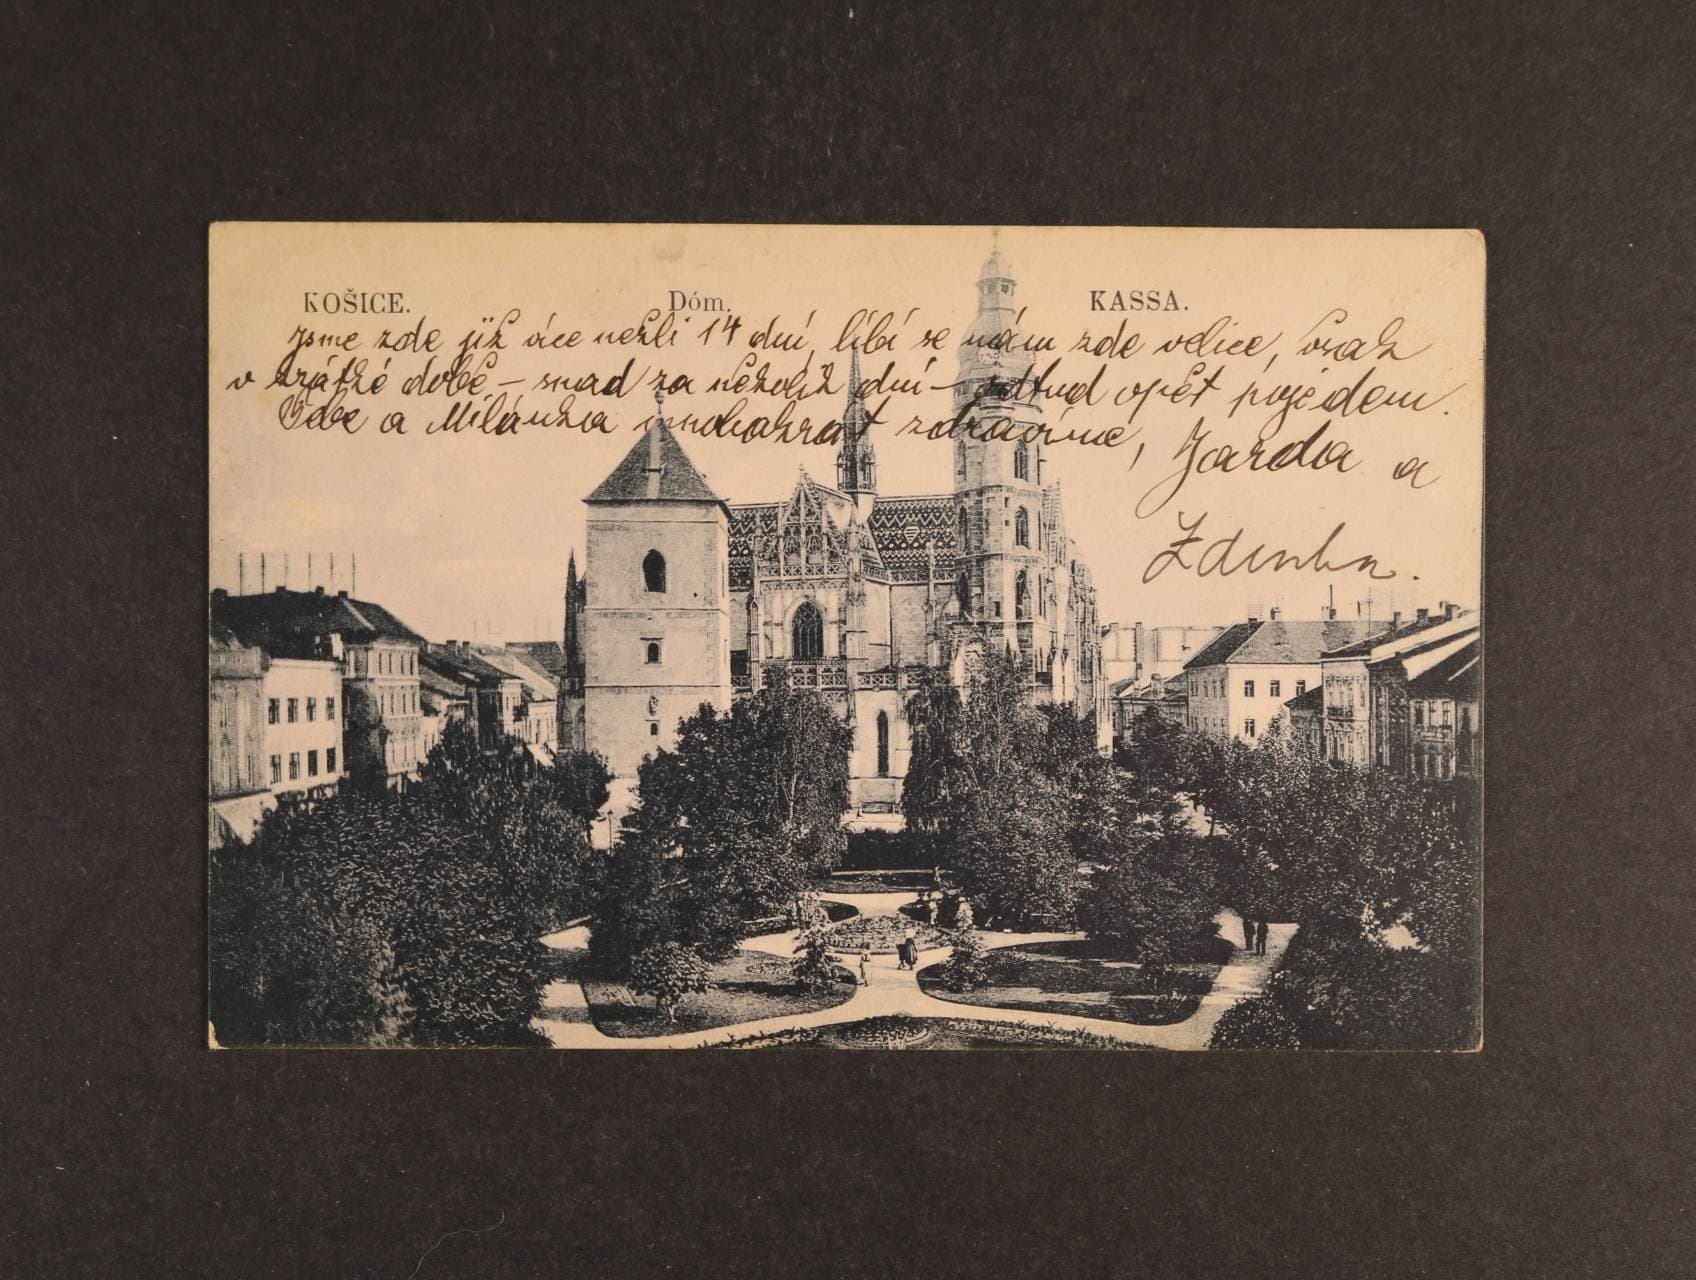 KOŠICE. Dóm. KASSA.
Jsme zde již více nežli 14 dní, líbí se nám zde velice, však
v krátké době – snad za několik dní – odtud opět pojedem.
Tebe a Milánka mnohokrat zdravíme, Jarda a
Zdenka.